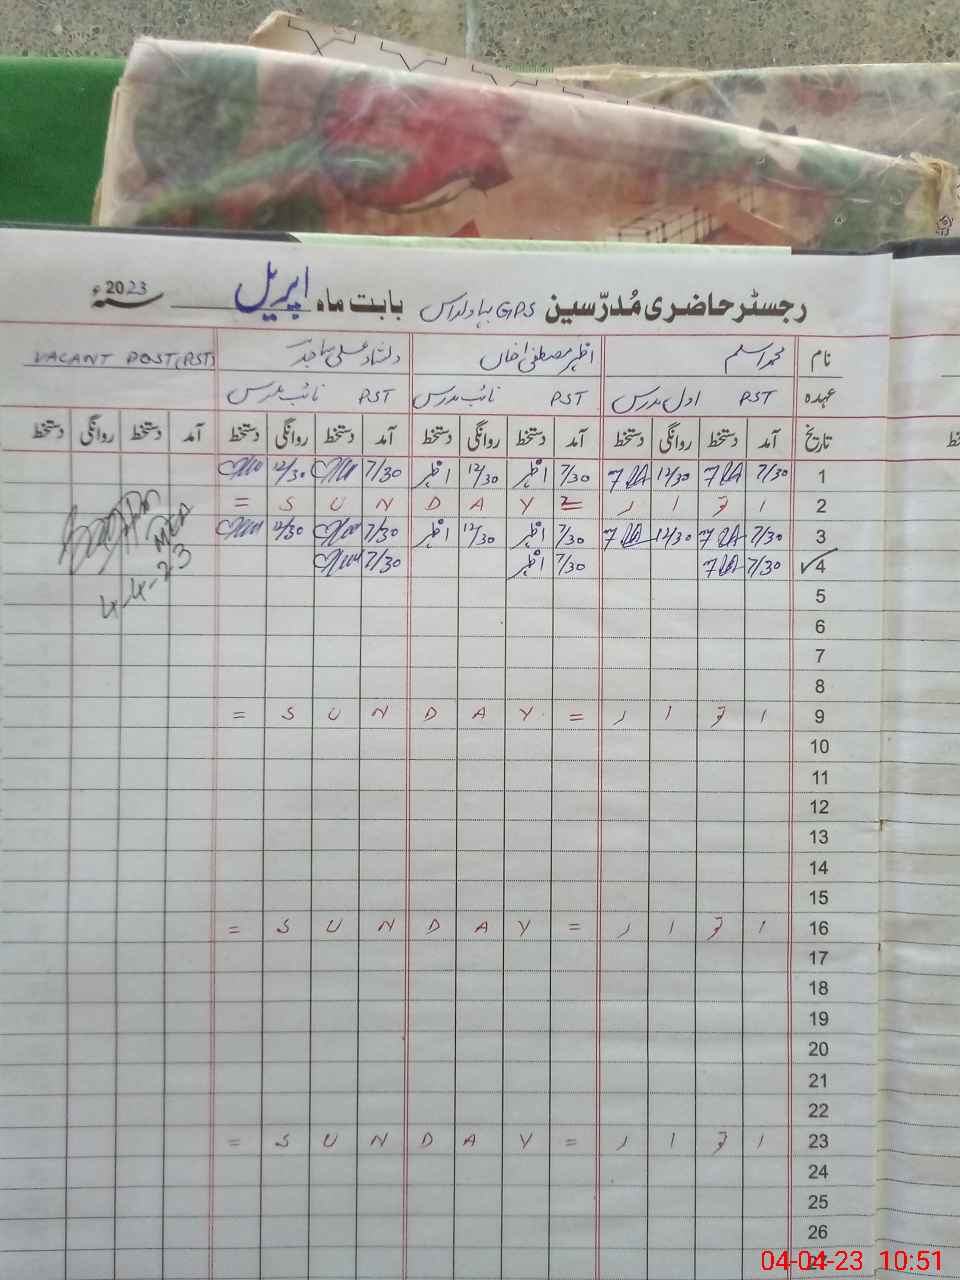 رجسٹر حاضری مُدرّسین GPS بہاولداس بابت ماہ اپریل 2023 سنہء
نام محمد اسلم اظہر مصطفیٰ خاں دلشاد علی ساجد VACANT POST(PST)
عہدہ PST اول مدرس PST نائب مدرس PST نائب مدرس
تاریخ آمد دستخط روانگی دستخط آمد دستخط روانگی دستخط آمد دستخط روانگی دستخط آمد دستخط روانگی دستخط
1 7/30 12/30 7/30 اظہر 12/30 اظہر 7/30 12/30
2 ا ت ا ر = S U N D A Y =
3 7/30 12/30 7/30 اظہر 12/30 اظہر 7/30 12/30
4 7/30 7/30 اظہر 7/30
MEA
4-4-23
5
6
7
8
9 ا ت ا ر = S U N D A Y =
10
11
12
13
14
15
16 ا ت ا ر = S U N D A Y =
17
18
19
20
21
22
23 ا ت ا ر = S U N D A Y =
24
25
26
27
04-04-23 10:51